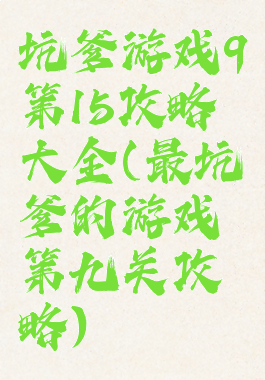 坑爹游戏9
第15攻略
大全(最坑
爹的游戏
第九关攻
略)